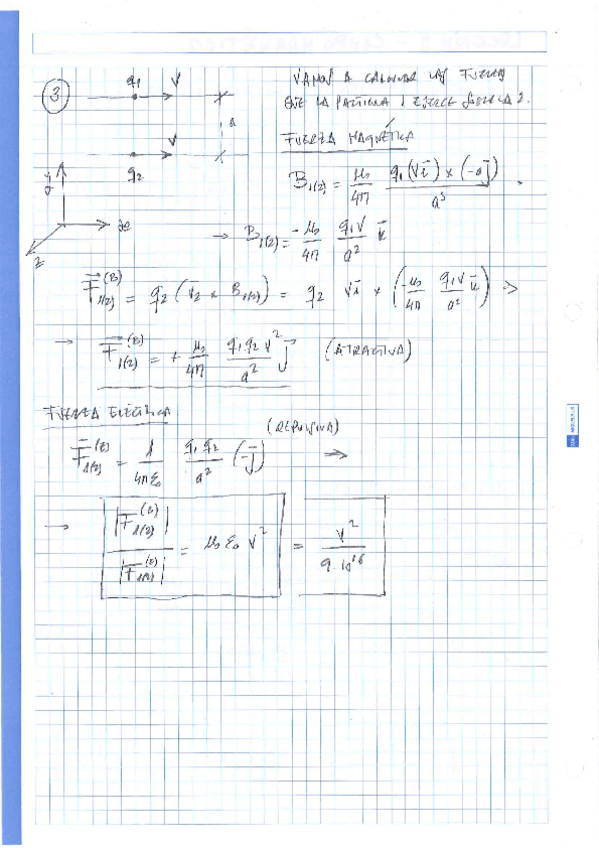 ③ q₁ V
VAMOS A CALCULAR LAS FUERZAS
QUE LA PARTÍCULA 1 EJERCE SOBRE LA 2.
a
V
q₂
FUERZA MAGNÉTICA
y
x
z
B₁₍₂₎ = μ₀/4π q₁(Vi⃗) × (-aj⃗)/a³
→ B₁₍₂₎ = -μ₀/4π q₁V/a² k⃗
F⃗₁₍₂₎⁽ᴮ⁾ = q₂ (V⃗₂ × B₁₍₂₎) = q₂ Vi⃗ × (-μ₀/4π q₁V/a² k⃗) ⇒
→ F⃗₁₍₂₎⁽ᴮ⁾ = + μ₀/4π q₁q₂V²/a² j⃗ (ATRACTIVA)
FUERZA ELÉCTRICA
(REPULSIVA)
F⃗₁₍₂₎⁽ᴱ⁾ = 1/4πε₀ q₁q₂/a² (-j⃗) ⇒
→ |F⃗₁₍₂₎⁽ᴮ⁾|/|F⃗₁₍₂₎⁽ᴱ⁾| = μ₀ε₀V² = V²/9·10¹⁶